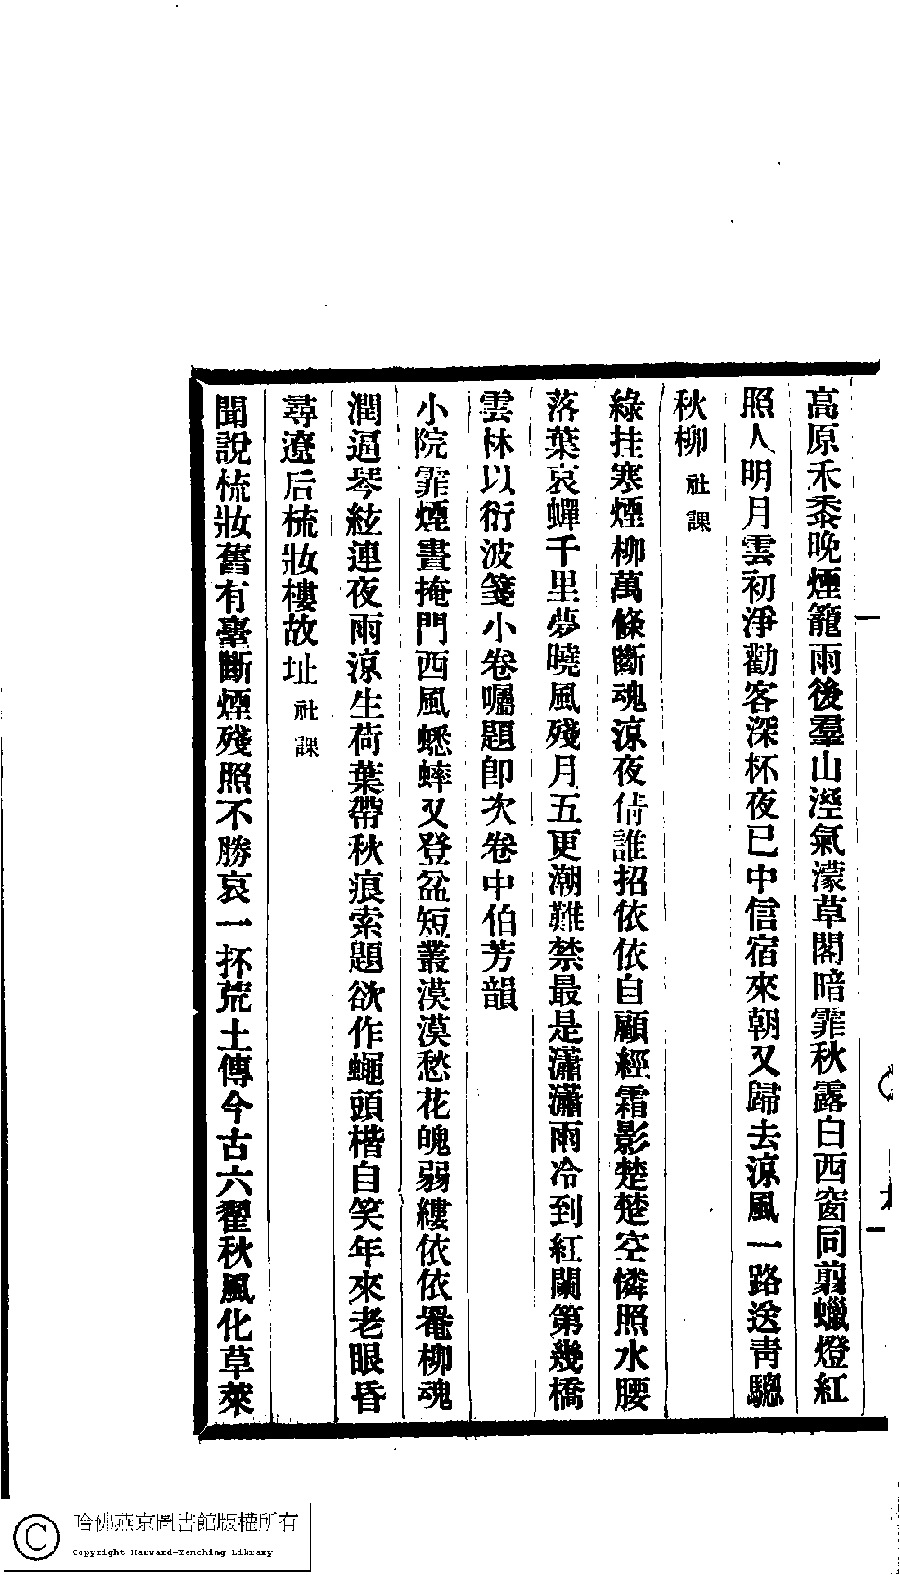 高原禾黍晚煙籠雨後羣山溼氣濛草閣暗霏秋露白西窗同翦蠟燈紅
照人明月雲初淨勸客深杯夜已中信宿來朝又歸去涼風一路送靑驄
秋柳 社課
綠挂寒煙柳萬條斷魂涼夜倩誰招依依自顧經霜影楚楚空憐照水腰
落葉哀蟬千里夢曉風殘月五更潮難禁最是瀟瀟雨冷到紅闌第幾橋
雲林以衍波箋小卷囑題卽次卷中伯芳韻
小院霏煙晝掩門西風蟋蟀又登盆短叢漠漠愁花魄弱縷依依罨柳魂
潤逼琴絃連夜雨涼生荷葉帶秋痕索題欲作蠅頭楷自笑年來老眼昏
尋遼后梳妝樓故址 社課
聞說梳妝舊有臺斷煙殘照不勝哀一抔荒土傳今古六翟秋風化草萊
哈佛燕京圖書館版權所有
Copyright Harvard-Yenching Library